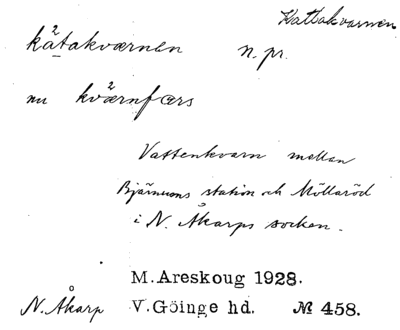 Kattakvarnen
kätakværnen n. pr.
nu kværnfors
Vattenkvarn mellan
Bjärnums station och Möllaröd
i N. Åkarps socken.
M. Areskoug 1928.
N. Åkarp V. Göinge hd. № 458.